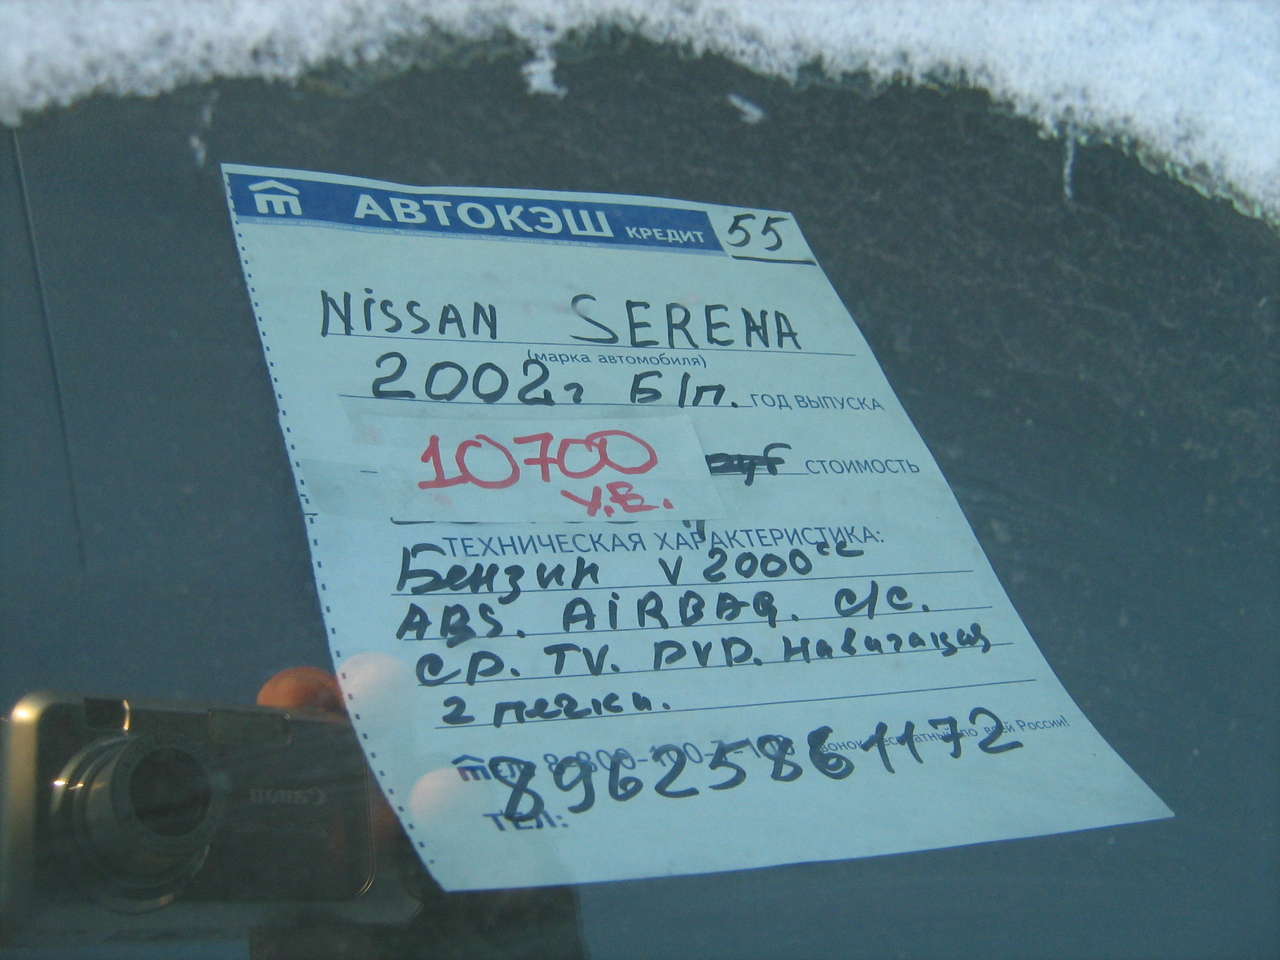 АВТОКЭШ КРЕДИТ 55
NiSSAN SERENA
(марка автомобиля)
2002г Б/п. ГОД ВЫПУСКА
10700 СТОИМОСТЬ
У.Е.
ТЕХНИЧЕСКАЯ ХАРАКТЕРИСТИКА:
Бензин V 2000 cc
ABS. AiRBAG. C/C.
CD. TV. DVD. Навигация
2 печки.
8-800-100-7- всей России!
89625861172
ТЕЛ:
Canon